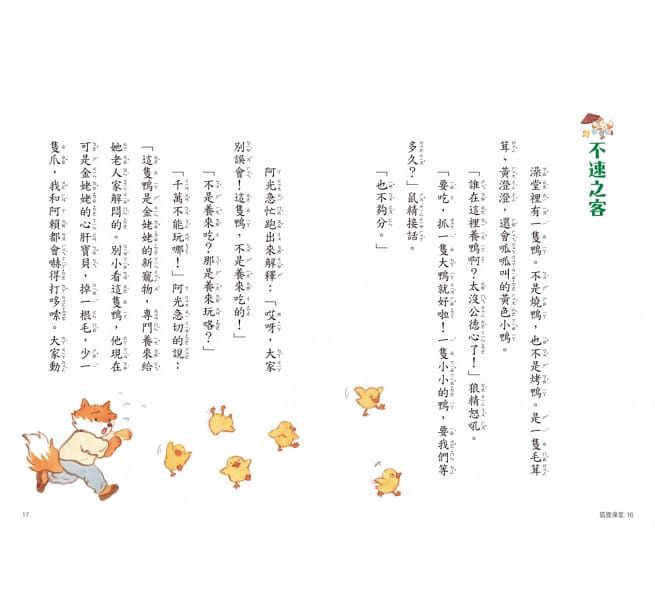 不速之客
澡堂裡有一隻鴨。不是燒鴨，也不是烤鴨。是一隻毛茸
茸、黃澄澄，還會呱呱叫的黃色小鴨。
「誰在這裡養鴨啊？太沒公德心了！」狼精怒吼。
「要吃，抓一隻大鴨就好啦！一隻小小的鴨，要我們等
多久？」鼠精接話。
「也不夠分。」
狐狸澡堂 16
阿光急忙跑出來解釋：「哎呀，大家
別誤會！這隻鴨，不是養來吃的！」
「不是養來吃？那是養來玩咯？」
「千萬不能玩哪！」阿光急切的說：
「這隻鴨是金姥姥的新寵物，專門養來給
她老人家解悶的。別小看這隻鴨，他現在
可是金姥姥的心肝寶貝，掉一根毛，少一
隻爪，我和阿賴都會嚇得打哆嗦。大家動
17